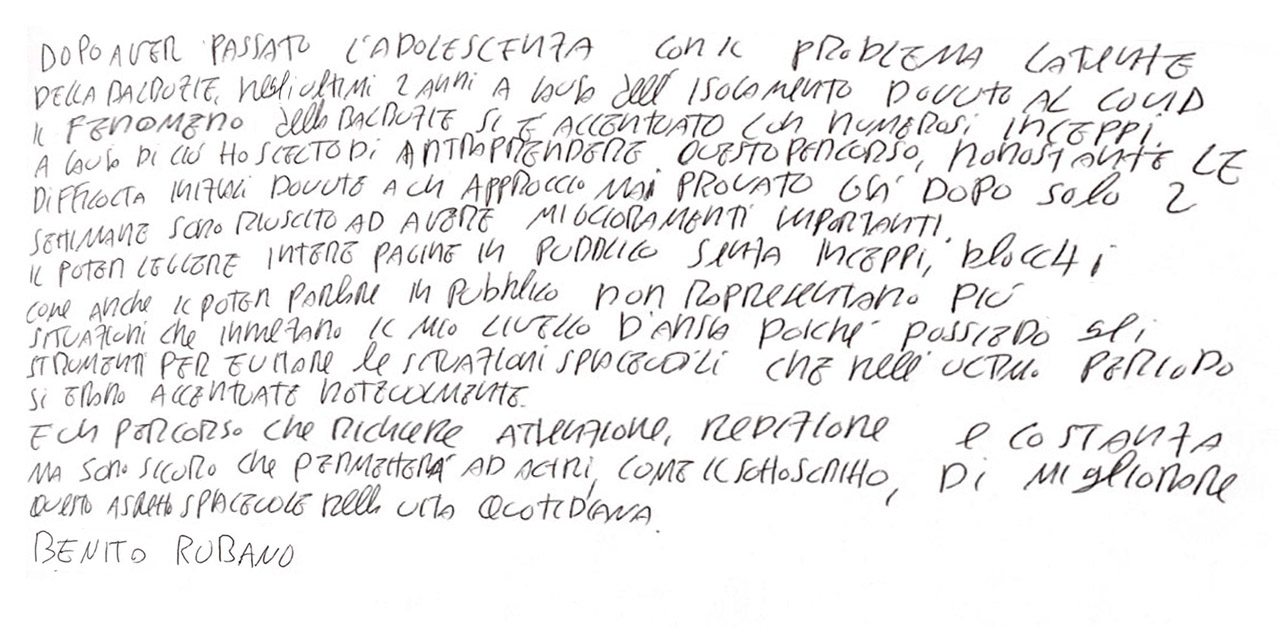 DOPO AVER PASSATO L'ADOLESCENZA CON IL PROBLEMA LATENTE
DELLA BALBUZIE, NEGLI ULTIMI 2 ANNI A CAUSA dell' ISOLAMENTO DOVUTO AL COVID
IL FENOMENO della BALBUZIE SI È ACCENTUATO CON NUMEROSI INCEPPI.
A CAUSA DI CIÒ HO SCELTO DI INTRAPRENDERE QUESTO PERCORSO, NONOSTANTE LE
DIFFICOLTÀ INIZIALI DOVUTE A UN APPROCCIO MAI PROVATO GIÀ DOPO SOLO 2
SETTIMANE SONO RIUSCITO AD AVERE MIGLIORAMENTI IMPORTANTI.
IL POTER LEGGERE INTERE PAGINE IN PUBBLICO SENZA INCEPPI, blocchi
COME ANCHE IL POTER PARLARE IN PUBBLICO NON RAPPRESENTANO PIÙ
SITUAZIONI che INNALZANO IL MIO LIVELLO D'ANSIA POICHÉ POSSIEDO gli
STRUMENTI PER EVITARE le SITUAZIONI SPIACEVOLI CHE nell' ULTIMO PERIODO
SI ERANO ACCENTUATE NOTEVOLMENTE.
È UN PERCORSO che RICHIEDE ATTENZIONE, DEDIZIONE e COSTANZA
MA SONO SICURO che PERMETTERÀ AD ALTRI, COME IL SOTTOSCRITTO, DI MIGLIORARE
QUESTO ASPETTO SPIACEVOLE nella VITA QUOTIDIANA.
BENITO RUBANO